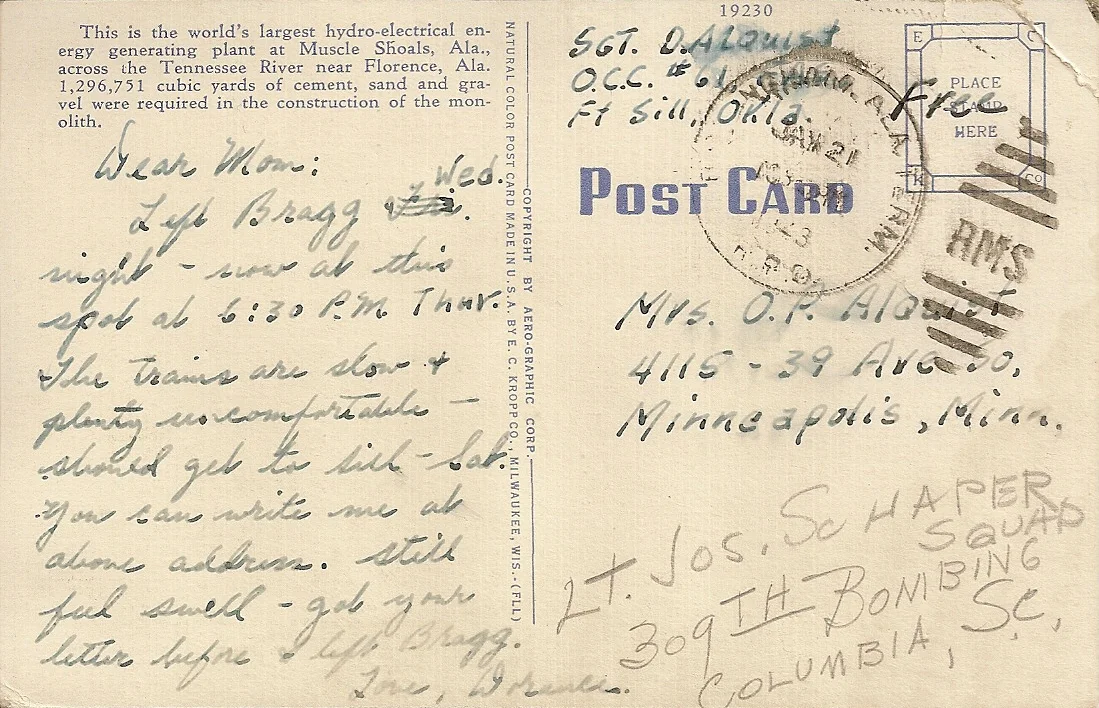 This is the world's largest hydro-electrical en-
ergy generating plant at Muscle Shoals, Ala.,
across the Tennessee River near Florence, Ala.
1,296,751 cubic yards of cement, sand and gra-
vel were required in the construction of the mon-
olith.
Dear Mom:
Wed.
Left Bragg
night - now at this
spot at 6:30 P.M. Thur.
The trains are slow &
plenty uncomfortable -
should get to Sill - Sat.
You can write me at
above address. Still
feel swell - got your
letter before I left Bragg.
Love, Dorance.
NATURAL COLOR POST CARD MADE IN U.S.A. BY E. C. KROPP CO., MILWAUKEE, WIS.-(FLL)
COPYRIGHT BY AERO-GRAPHIC CORP.
19230
SGT. D. Alquist
O.C.C. # 61
Ft Sill, Okla.
E C
K CO
PLACE
STAMP
HERE
Free
POST CARD
ALA
JAN 21
PM
1943
TERM.
R.P.O.
RMS
Mrs. O.P. Alquist
4115 - 39 Ave So.
Minneapolis, Minn.
LT. JOS. SCHAPER
SQUAD
309TH BOMBING
COLUMBIA, S.C.